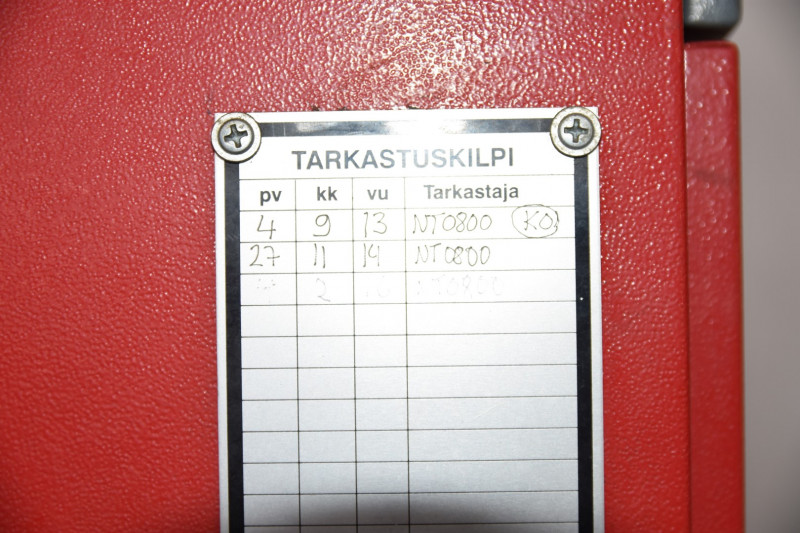 TARKASTUSKILPI
pv kk vu Tarkastaja
4 9 13 NT0800 KO
27 11 14 NT0800
2 NT0800